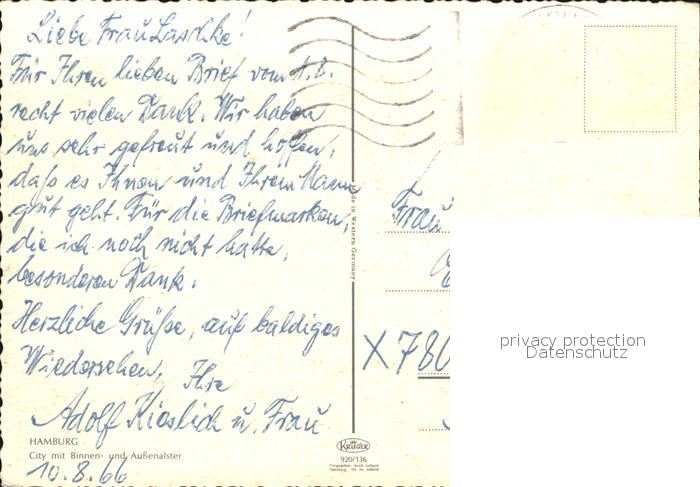 Liebe Frau Laschke!
Für Ihren lieben Brief vom 1.8.
recht vielen Dank. Wir haben
uns sehr gefreut und hoffen,
daß es Ihnen und Ihrem Mann
gut geht. Für die Briefmarken,
die ich noch nicht hatte,
besonderen Dank.
Herzliche Grüße, auf baldiges
Wiedersehen. Ihre
Adolf Kioslich u. Frau
HAMBURG
City mit Binnen- und Außenalster
10.8.66
Made in Western Germany
KRÜGER
920/136
Freigegeben durch Luftamt
Frau
X 780
privacy protection
Datenschutz